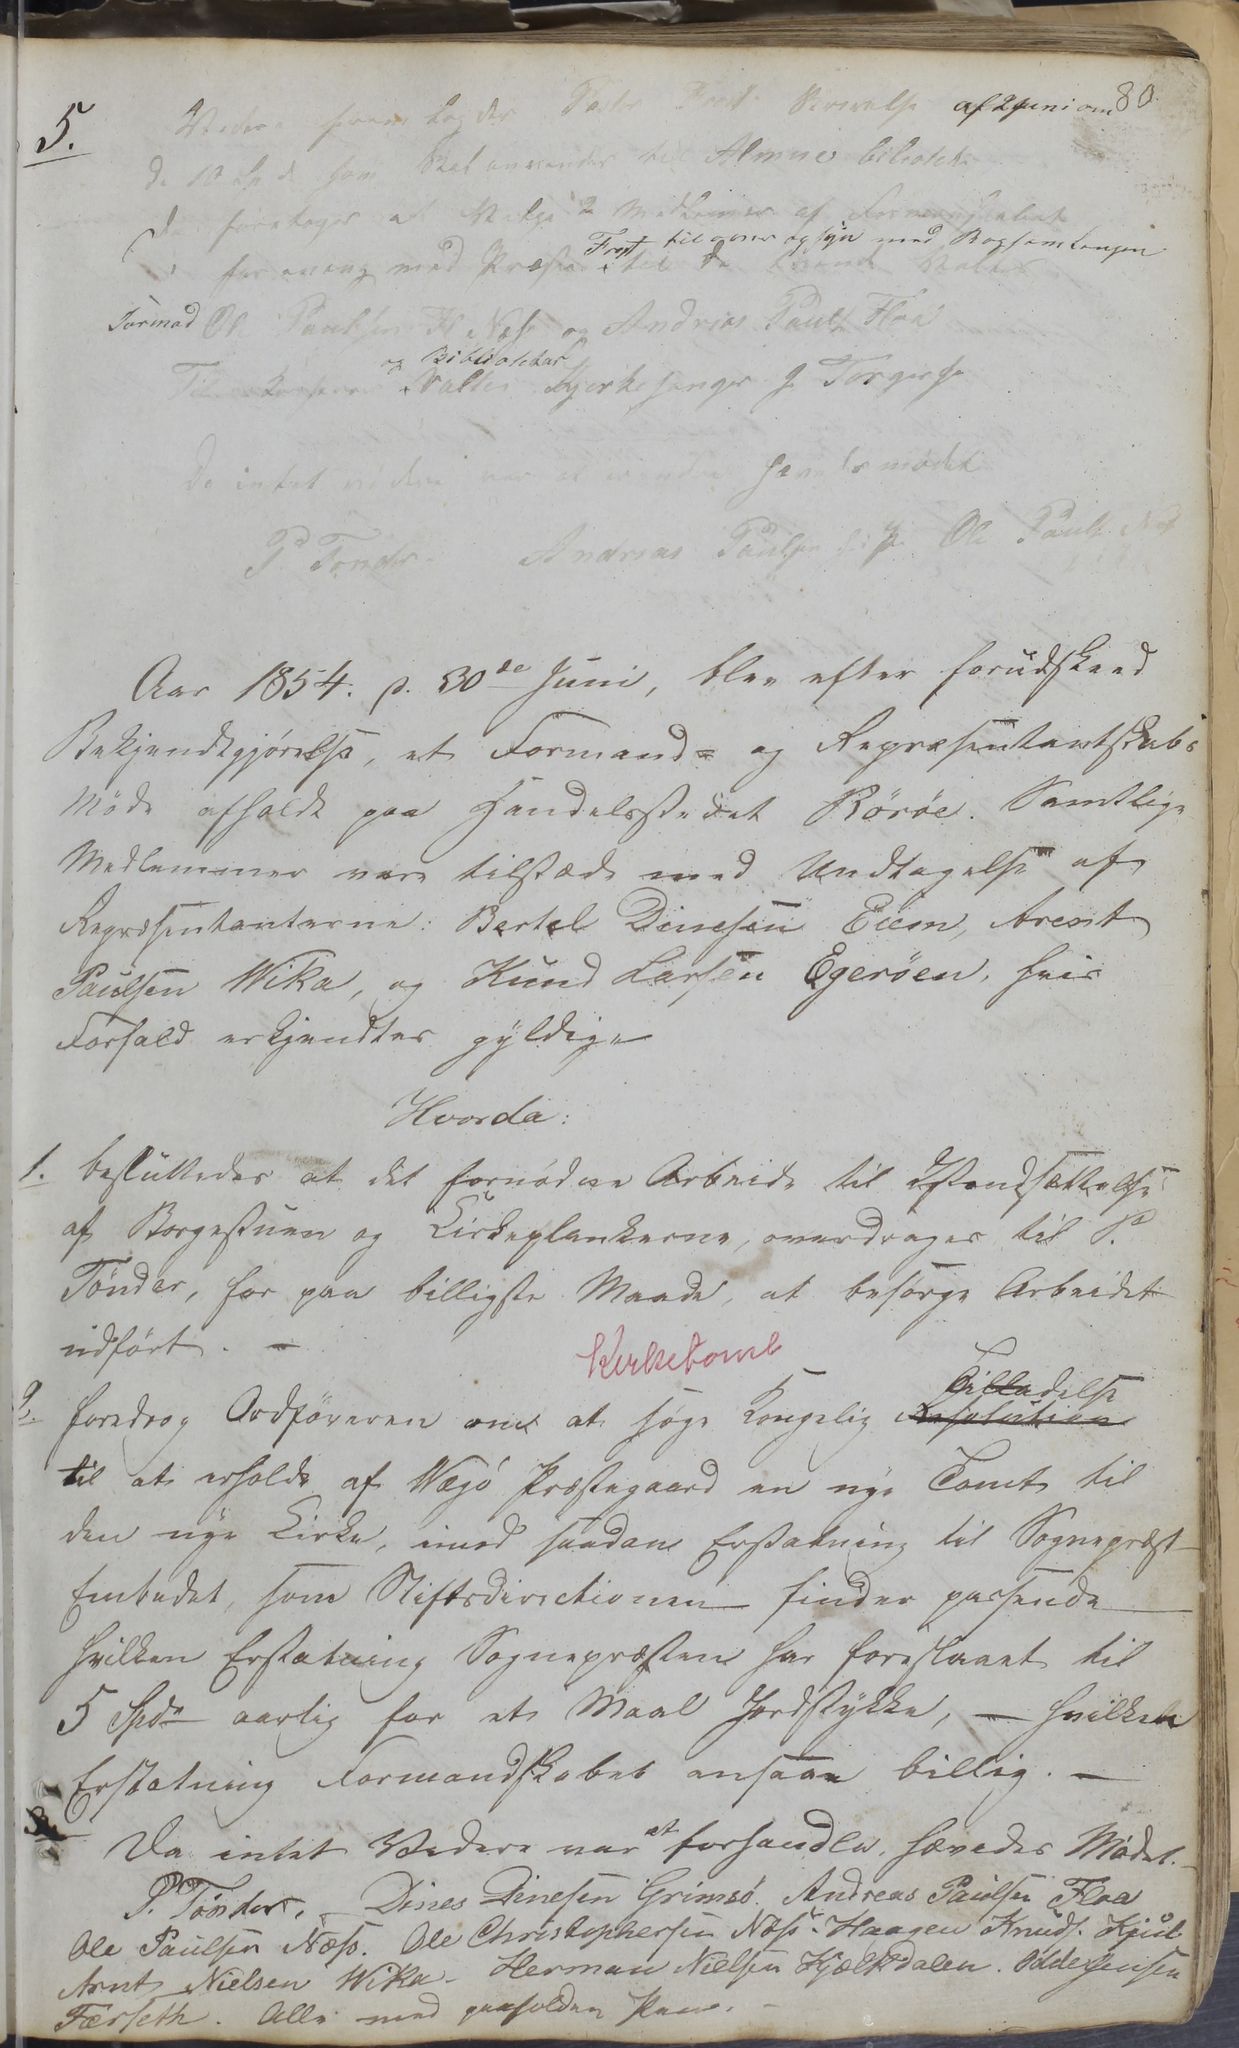 80
5. Videre fremlagdes Pastor Frost Skrivelse af 2 Juni om
de 10 Spd som skal anvendes til Almue bibliothek
Der foretoges at Vælge 2 Medlemer af Formandskabet
Frost til over opsyn med Bogsamlingen
forævng med Præsten til de
Formad Ol Paulsen Næss og Andrias Pauls Floa
og Bibliothekar
Til Valtes Kjerkesanger J. Torgersen
Da intet videre var at hævedes mødet
P. Tønder. Andreas Paulsen Ole Pauls Næs
Aar 1854. d. 30de Juni, blev efter forudskeed
Bekjendtgjørelse, et Formand- og Repræsentantskabs
Møde afholdt paa Handelsstedet Rörøe. Samtlige
Medlemmer vare tilstæde med Undtagelse af
Repræsentanterne: Bertel Dinesen Eiem, Arent
Paulsen Wika, og Knud Larsen Egerøen, hvis
Forfald erkjendtes gyldige
Hvorda:
1. besluttedes at det fornødne Arbeide til Istandsættelse
af Borgestuen og Kirkeplankerne, overdrages til P.
Tønder, for paa billigste Maade, at besørge Arbeidet
udført. —
Kirketomt
Tilladelse
2. foredrog Ordføreren om at søge Kongelig Resolution
til at erholde af Wegø Præstegaard en nye Tomt til
den nye Kirke, imod saadan Erstatning til Sognepræst-
Embedet, som Stiftsdirectionen finder passende
hvilken Erstatning Sognepræsten har foreslaaet til
5 Spd aarlig for et Maal Jordstykke, — hvilken
Erstatning Formandskabet ansaae billig. —
Da intet Videre var at forhandle, hævedes Mødet.
P. Tönder. Dines Dinesen Grimsö. Andreas Paulsen Floa
Ole Paulsen Næss. Ole Christophersen Næss. Haagen Knuds. Kjul
Arnt Nielsen Wika. Herman Nielsen Hjælkdalen. Odde Jensen
Færseth. Alle med paaholden Pen. —